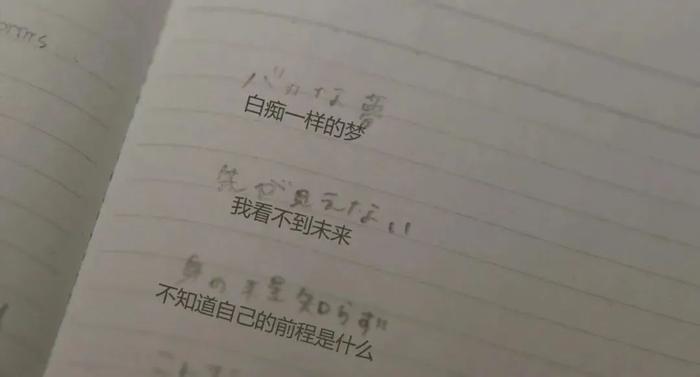 バカな夢
白痴一样的梦
先が見えない
我看不到未来
身の
知らず
不知道自己的前程是什么